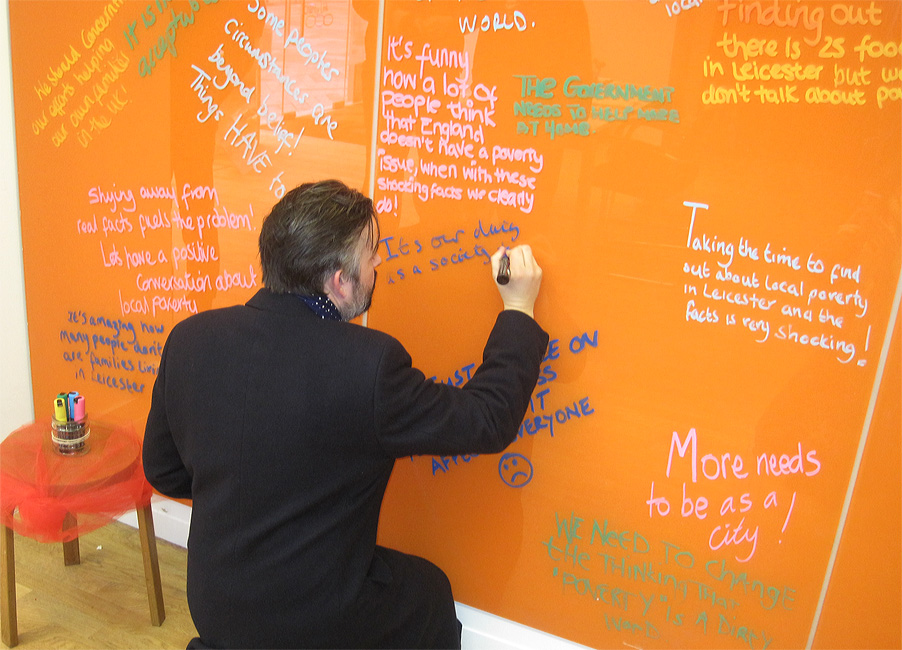 We should concentrate
our efforts helping
our own communities
in the UK!
IT IS N
acceptable
Some peoples
Circumstances are
beyond belief!
Things HAVE to
WORLD.
It's funny
how a lot of
people think
that England
doesn't have a poverty
issue, when with these
shocking facts we clearly
do!
THE GOVERNMENT
NEEDS TO HELP MORE
AT HOME
local
Finding out
there is 25 food
in Leicester but we
don't talk about po
Shying away from
real facts fuels the problem!
Lets have a positive
Conversation about
local poverty
It's amazing how
many people don't
are families livi
in Leicester
It's our duty
as a society
Taking the time to find
out about local poverty
in Leicester and the
facts is very shocking!
UST
ON
SS
IT
AFFE
EVERYONE
More needs
to be as a
city!
WE NEED TO CHANGE
the THINKING THAT
"POVERTY" IS A DIRTY
WORD